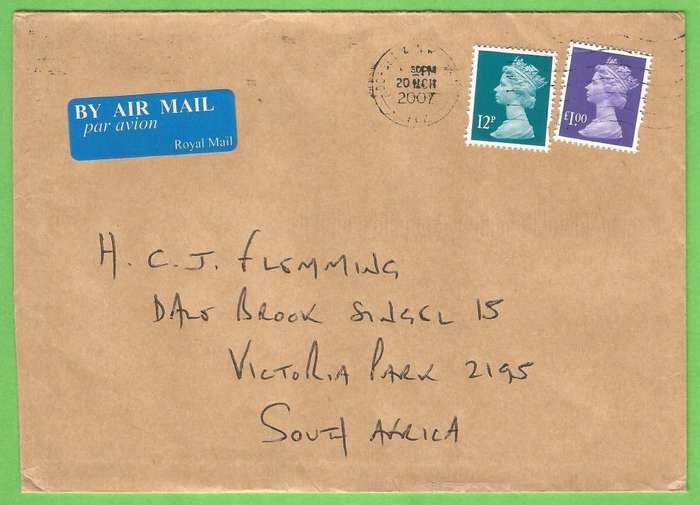 BY AIR MAIL
par avion
Royal Mail
PM
20 MCH
2007
12P
£1.00
H. C. J. FLEMMING
DALE BROOK SINGEL 15
VICTORIA PARK 2195
SOUTH AFRICA